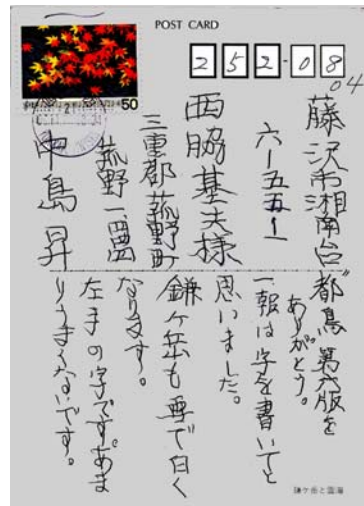 POST CARD
50
252-08
04
藤沢市湘南台
六ー五五ー一
西脇基夫様
三重郡菰野町
菰野一四四
中島昇
"都鳥"第六版を
ありがとう。
一報は字を書いてと
思いました。
鎌ヶ岳も雪で白く
なります。
左手の字です。あま
りうまくないです。
鎌ケ岳と雲海